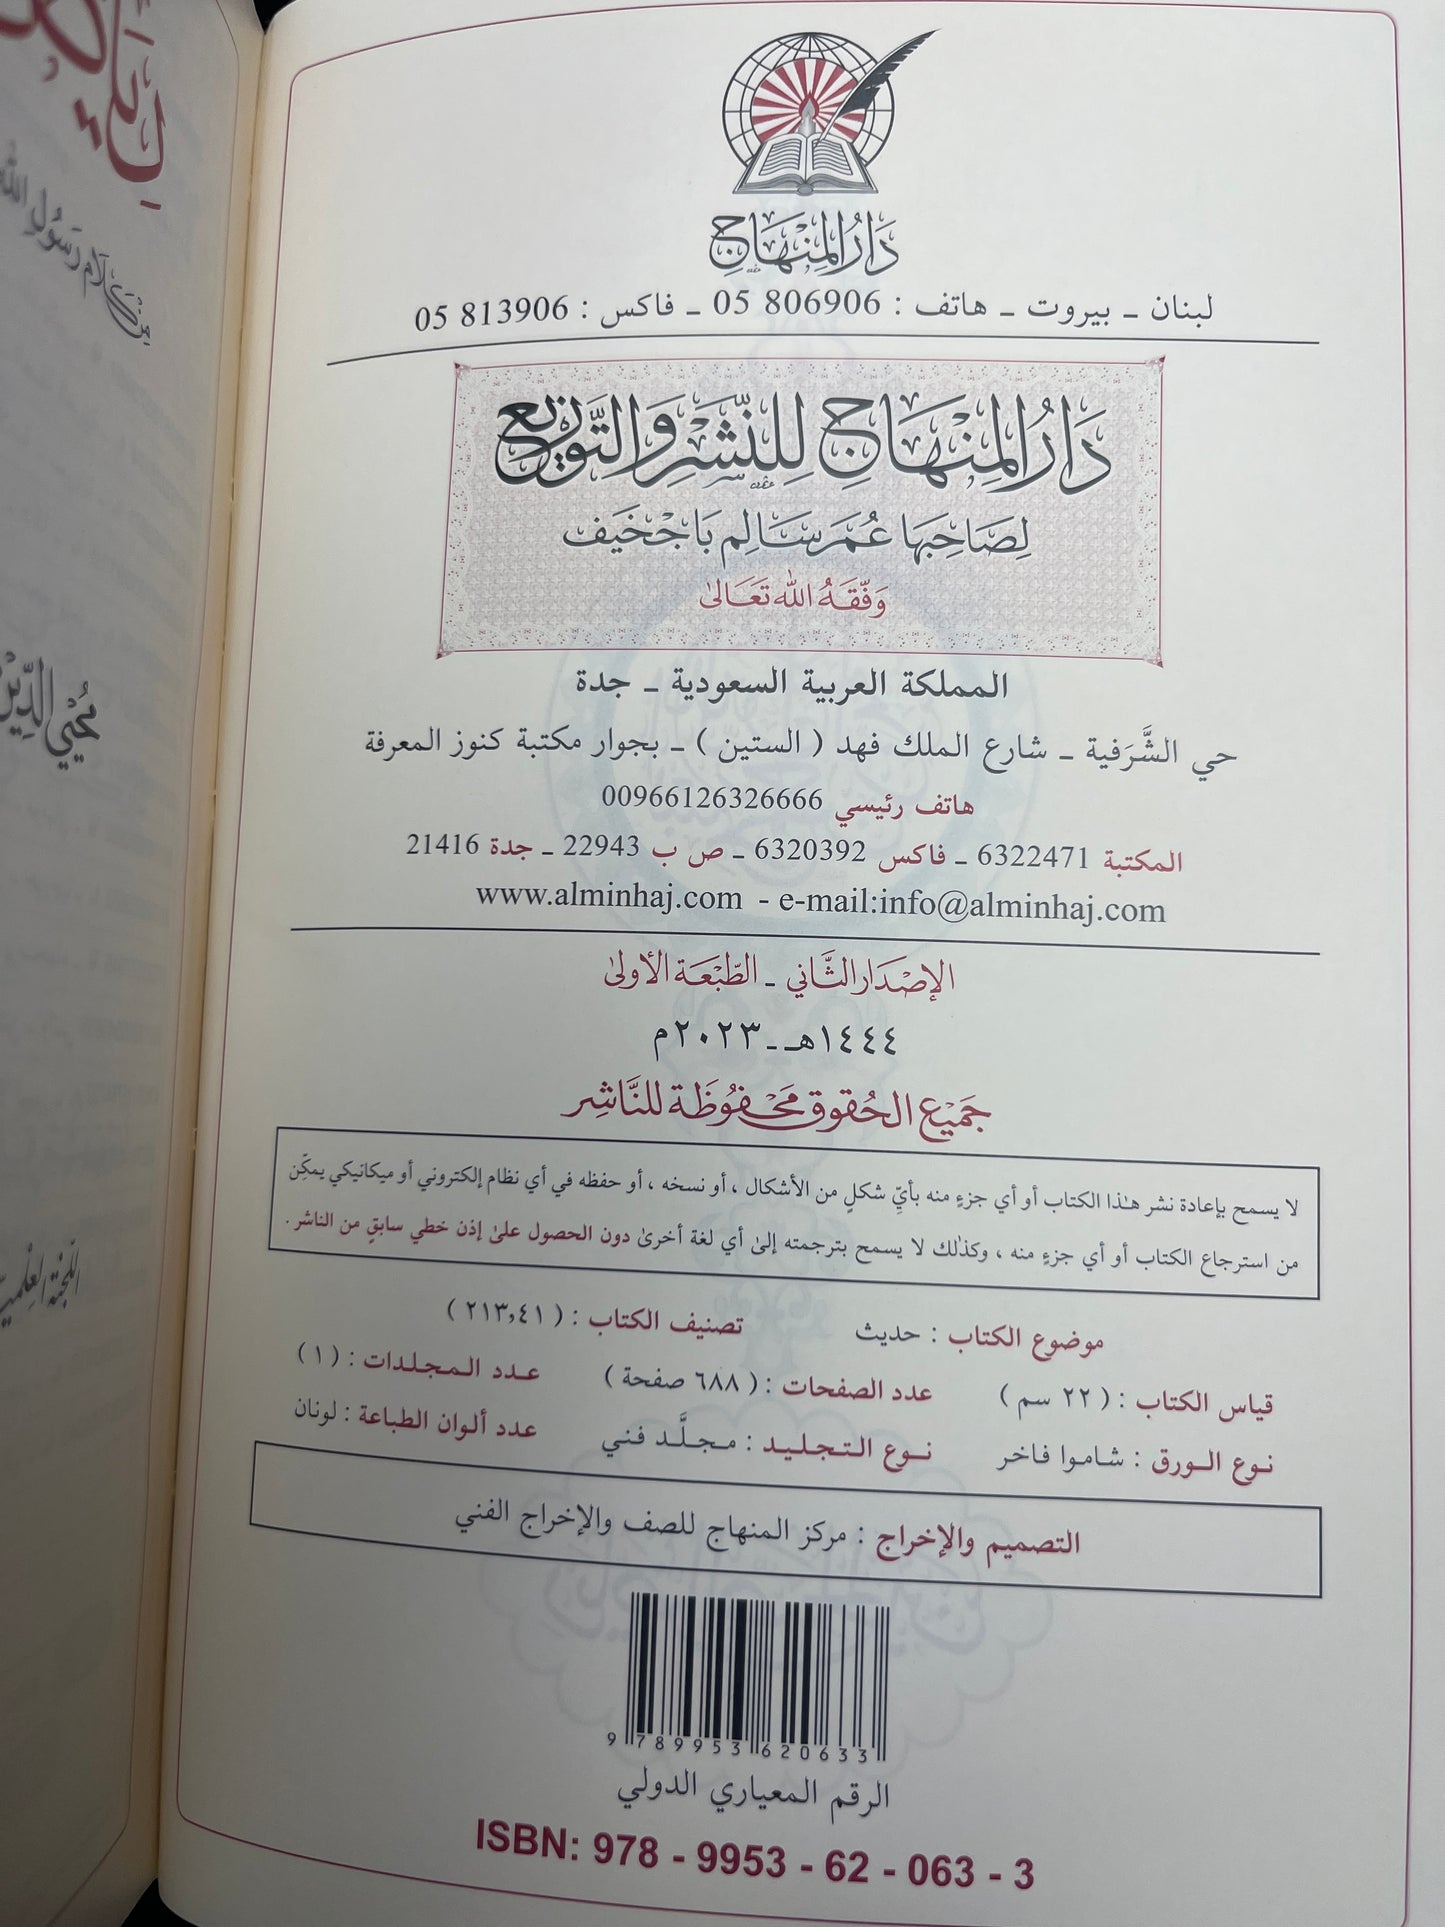 دَارُ المِنْهَاج
لبنان - بيروت - هاتف : 806906 05 - فاكس : 813906 05
دَارُ المِنْهَاج لِلنَّشْرِ وَالتَّوْزِيع
لِصَاحِبِهَا عُمَر سَالِم بَاجْخَيف
وَفَّقَهُ اللهُ تَعَالىٰ
المملكة العربية السعودية - جدة
حي الشَّرَفية - شارع الملك فهد ( الستين ) - بجوار مكتبة كنوز المعرفة
هاتف رئيسي 00966126326666
المكتبة 6322471 - فاكس 6320392 - ص ب 22943 - جدة 21416
www.alminhaj.com - e-mail:info@alminhaj.com
الإصْدَار الثَّاني - الطَّبْعَة الأولىٰ
١٤٤٤هـ - ٢٠٢٣م
جَمَيْع الحُقُوق مَحْفُوظَة للنَّاشِر
لا يسمح بإعادة نشر هـٰذا الكتاب أو أي جزءٍ منه بأيِّ شكلٍ من الأشكال ، أو نسخه ، أو حفظه في أي نظام إلكتروني أو ميكانيكي يمكِّن
من استرجاع الكتاب أو أي جزءٍ منه ، وكذٰلك لا يسمح بترجمته إلىٰ أي لغة أخرىٰ دون الحصول علىٰ إذن خطي سابقٍ من الناشر .
موضوع الكتاب : حديث تصنيف الكتاب : ( ٢١٣,٤١ )
قياس الكتاب : ( ٢٢ سم ) عدد الصفحات : ( ٦٨٨ صفحة ) عـدد الـمـجـلـدات : ( ١ )
نـوع الـورق : شامـوا فاخر نـوع الـتـجـلـيـد : مـجـلَّـد فني عدد ألوان الطباعة : لونان
التصميم والإخراج : مركز المنهاج للصف والإخراج الفني
9 789953 620633
الرقم المعياري الدولي
ISBN: 978 - 9953 - 62 - 063 - 3
مِنْ كَلَام رَسُولِ اللهِ
مُحْيي الدِّين